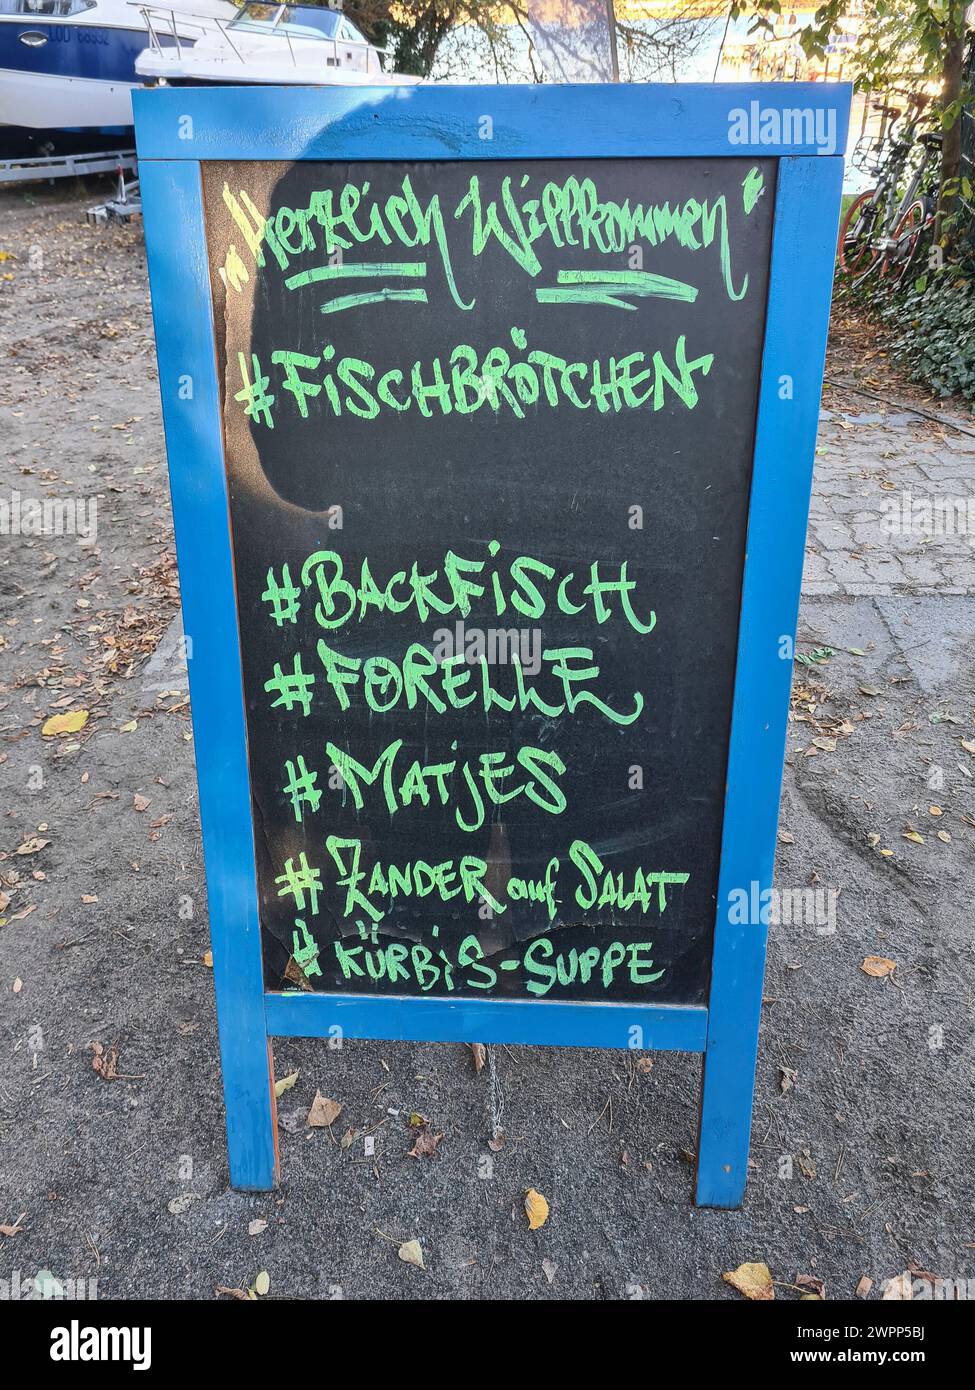 LOD 68932
„Herzlich Willkommen"
#FISCHBRÖTCHEN
#BACKFISCH
#FORELLE
#MATJES
#ZANDER auf SALAT
#KÜRBIS-SUPPE
alamy
Image ID: 2WPP5BJ
www.alamy.com